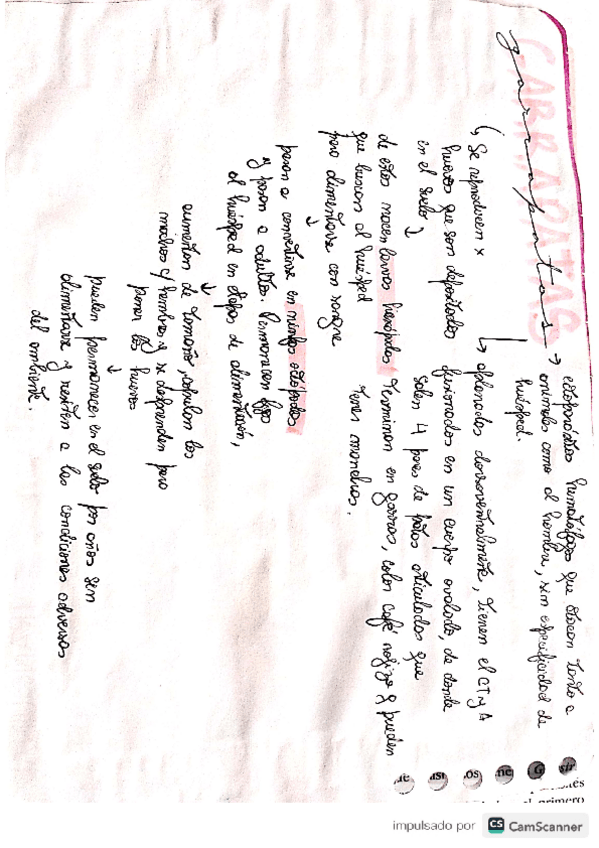 GARRAPATAS
garrapatas → ectoparásitos hematófagos que atacan tanto a
animales como al hombre, sin especificidad de
huésped.
↳ aplanadas dorsoventralmente, tienen el CT y A
fusionados en un cuerpo ovalado, de donde
salen 4 pares de patas articuladas que
terminan en garras, color café rojizo y pueden
tener manchas.
↳ Se reproducen x
huevos que son depositados
en el suelo
↓
de estos nacen larvas hexápodas
que buscan al huésped
para alimentarse con sangre
↓
pasan a convertirse en ninfas octópodas
y pasan a adultos. Permanecen fijas
al huésped en etapas de alimentación,
↓
aumentan de tamaño, copulan los
machos c/ hembras y se desprenden para
poner los huevos
↓
pueden permanecer en el suelo por años sin
alimentarse y resisten a las condiciones adversas
del ambiente.
primero
impulsado por CS CamScanner